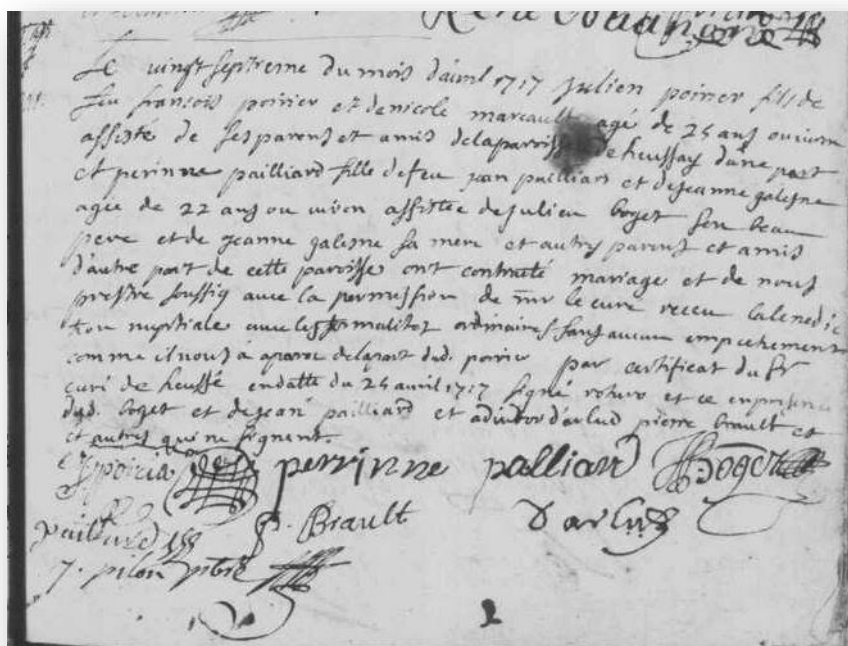 René
Le vingt septieme du mois d'avril 1717 julien poirier fils de
feu françois poirier et de nicole marcault agé de 25 ans ou viron
assisté de ses parens et amis de la paroisse de heussay d'une part
et perinne pailliard fille de feu jean pailliard et de jeanne galesne
agee de 22 ans ou viron assistee de julien boget son beau
pere et de jeanne galesne sa mere et autres parens et amis
d'autre part de cette paroisse ont contracté mariage et de nous
prestre soussig avec la permission de mr le curé receu la benedic
tion nuptiale avec les formalitez ordinaires sans aucun empechement
comme il nous à aparu de la part dud. poirier par certificat du sr
curé de heussé en datte du 25 avril 1717 signé et ce en presence
dud. boget et de jean pailliard et darlud pierre brault et
et autres qui ne signent.
poirier perrinne palliard Boget
pailliard P. Brault Darlud
J. pilon pbre